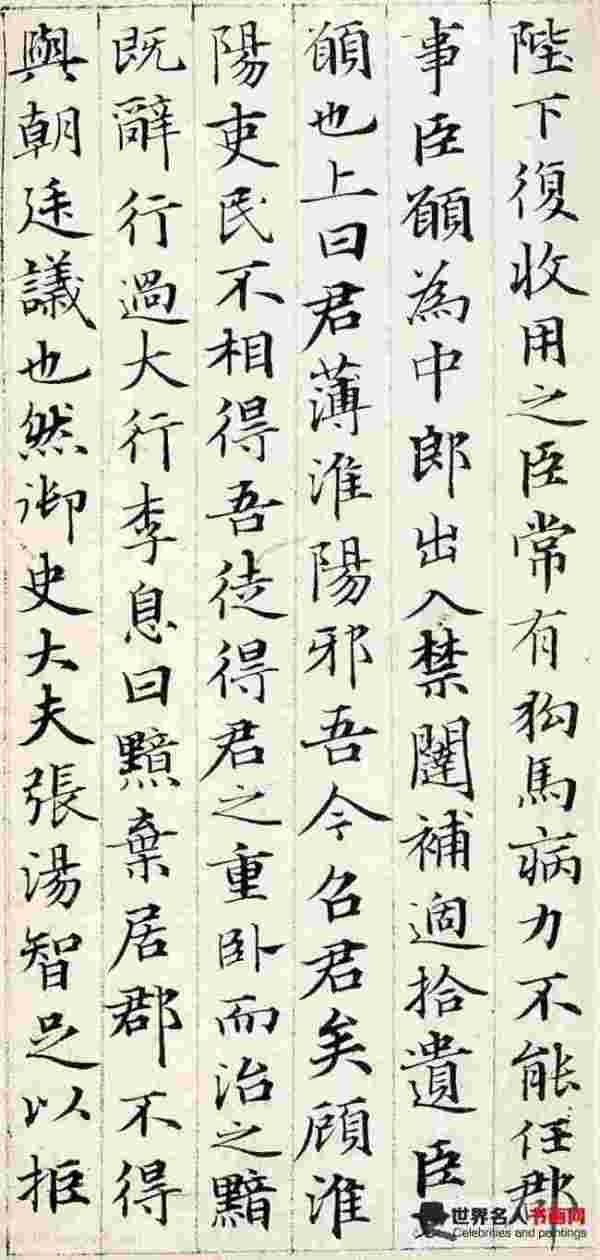 陛下復收用之臣常有狗馬病力不能任郡
事臣願為中郎出入禁闥補過拾遺臣
願也上曰君薄淮陽邪吾今召君矣顧淮
陽吏民不相得吾徒得君之重卧而治之黯
既辭行過大行李息曰黯棄居郡不得
與朝廷議也然御史大夫張湯智足以拒
世界名人书画网
Celebrities and paintings